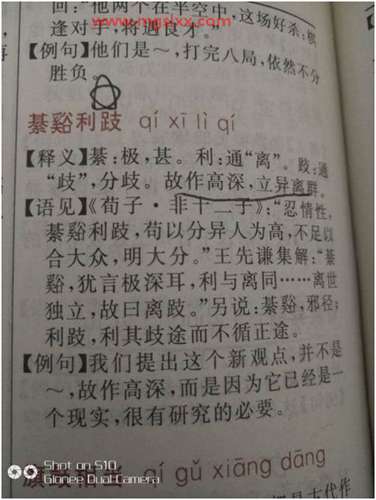 回:“他两个在半空中,这场好杀:棋
www.mgslxx.com
逢对手,将遇良才。”
【例句】他们是~,打完八局,依然不分
胜负。
綦谿利跂 qí xī lì qí
【释义】綦:极,甚。利:通“离”。跂:通
“歧”,分歧。故作高深,立异离群。
【语见】《荀子·非十二子》:“忍情性,
綦谿利跂,苟以分异人为高,不足以
合大众,明大分。”王先谦集解:“綦
谿,犹言极深耳,利与离同……离世
独立,故曰离跂。”另说:綦谿,邪径;
利跂,利其歧途而不循正途。
【例句】我们提出这个新观点,并不是
~,故作高深,而是因为它已经是一
个现实,很有研究的必要。
旗鼓相当 qí gǔ xiāng dāng
Shot on S10
Gionee Dual Camera